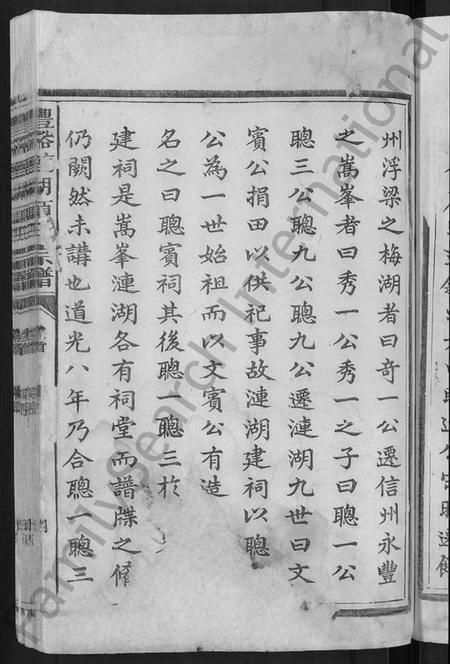 州浮梁之梅湖者曰奇一公遷信州永豐
之嵩峯者曰秀一公秀一之子曰聰一公
聰三公聰九公聰九公遷漣湖九世曰文
賓公捐田以供祀事故漣湖建祠以聰
公為一世始祖而以文賓公有造
名之曰聰賓祠其後聰一聰三於
建祠是嵩峯漣湖各有祠堂而譜牒之脩
仍闕然未講也道光八年乃合聰一聰三
FamilySearch International